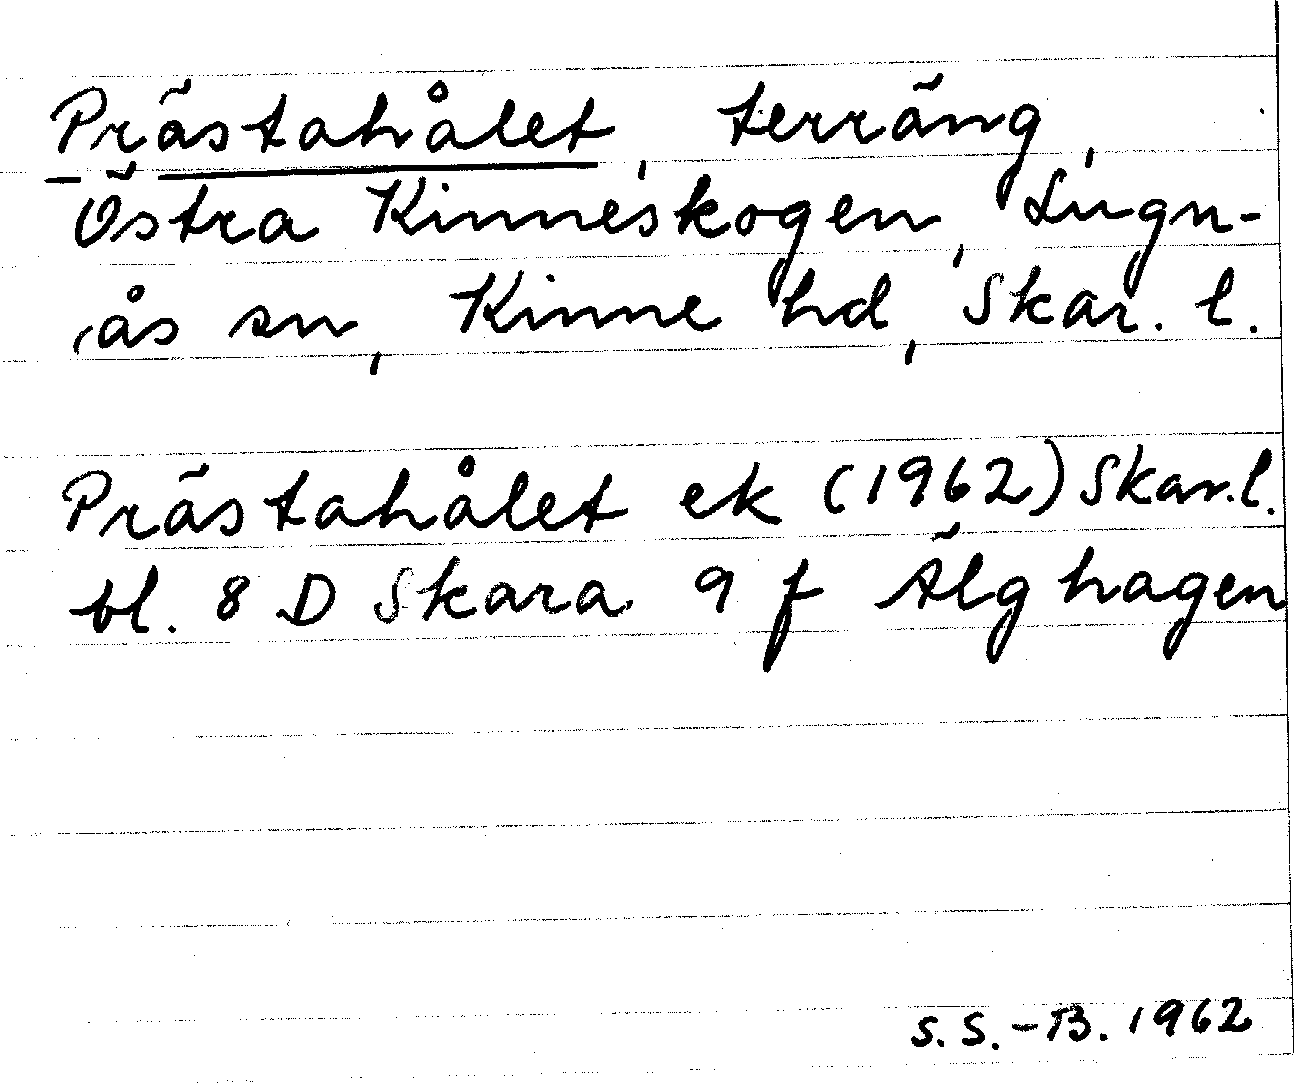 Prästahålet, terräng,
Östra Kinneskogen, Lugn-
ås sn, Kinne hd, Skar. l.
Prästahålet ek (1962) Skar. l.
bl. 8 D Skara 9 f Älghagen
S. S.-B. 1962